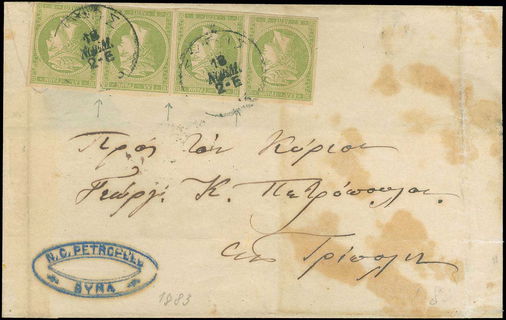 18
ΝΟΕΜ.
2-Ε
18
ΝΟΕΜ.
2-Ε
Πρὸς τὸν Κύριον
Γεώργ. Κ. Πετρόπουλον
εἰς Τρίπολιν
N.C. PETROPULO
SYRA
1883